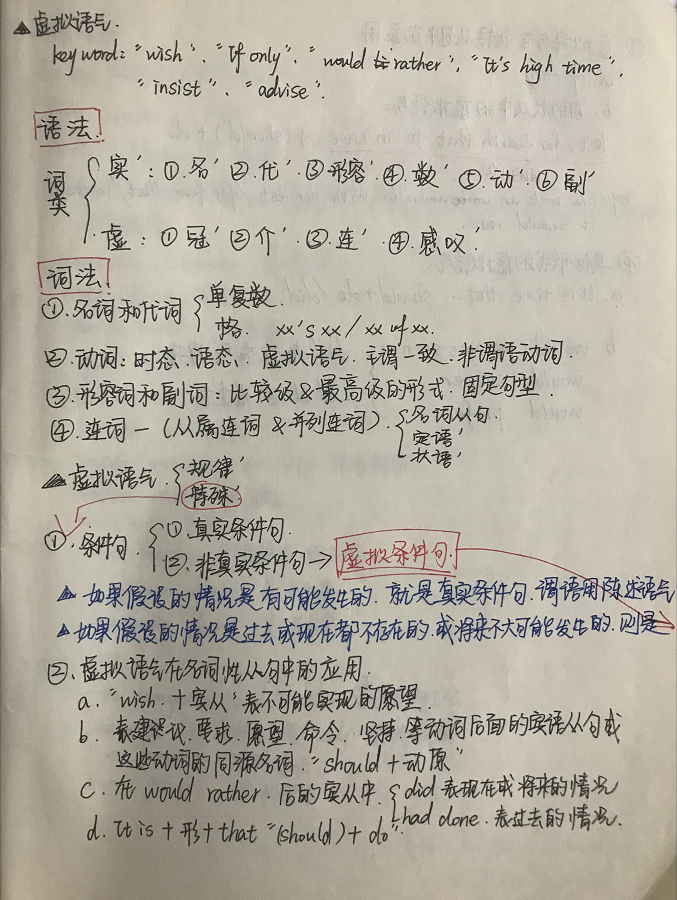 ▲虚拟语气.
key word: "wish"、"If only"、"would rather"、"It's high time".
"insist"、"advise".
语法.
词类 { 实': ①.名' ②.代' ③形容' ④.数' ⑤.动' ⑥副'
虚: ①冠' ②介' ③.连' ④.感叹'
词法.
①.名词和代词 { 单复数.
格. xx's xx / xx of xx.
②.动词: 时态.语态.虚拟语气.主谓一致.非谓语动词.
③形容词和副词: 比较级&最高级的形式.固定句型.
④.连词—(从属连词&并列连词). { 名词从句.
定语'
状语'
▲虚拟语气. { 规律'
特殊'
①.条件句. { ①.真实条件句.
②.非真实条件句→ 虚拟条件句.
▲如果假设的情况是有可能发生的.就是真实条件句.谓语用陈述语气
▲如果假设的情况是过去或现在都不存在的.或将来不大可能发生的.则是
②.虚拟语气在名词性从句中的应用.
a."wish.+宾从'表不可能实现的愿望.
b.表建议.要求.愿望.命令.坚持.等动词后面的宾语从句或
这些动词的同源名词."should+动原"
c.在would rather.后的宾从中. { did表现在或将来的情况
had done.表过去的情况.
d.It is+形+that "(should)+do".